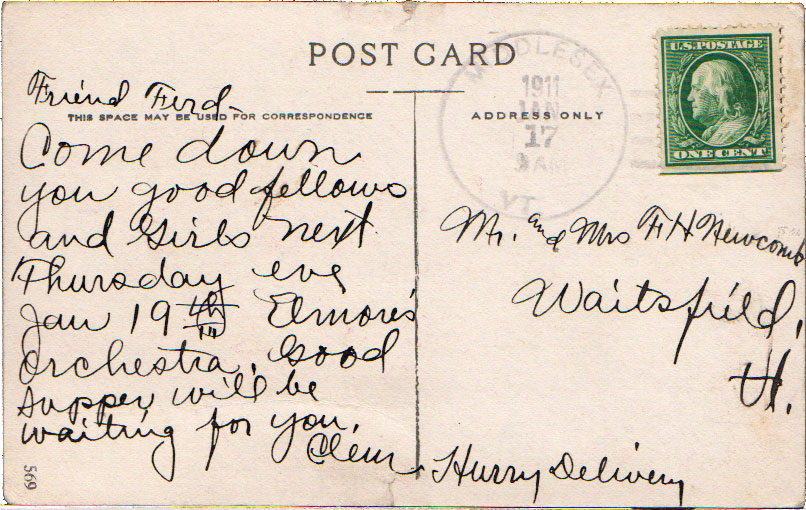 POST CARD
THIS SPACE MAY BE USED FOR CORRESPONDENCE
ADDRESS ONLY
U.S. POSTAGE
ONE CENT
MIDDLESEX
1911
JAN
17
AM
VT.
Friend Ferd-
Come down
you good fellows
and Girls next
Thursday eve
Jan 19th Elmore's
Orchestra. Good
supper will be
waiting for you.
Clem
Mr. and Mrs F. H Newcomb
Waitsfield,
Vt.
Hurry Delivery
569